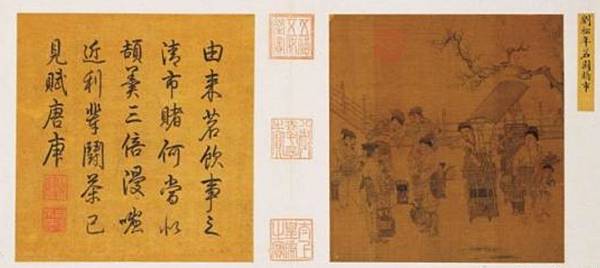 劉松年茗園賭市
由來茗飲事之
清市賭何當似
頡羹三倍漫嗤
近利輩鬪茶已
見賦唐庚